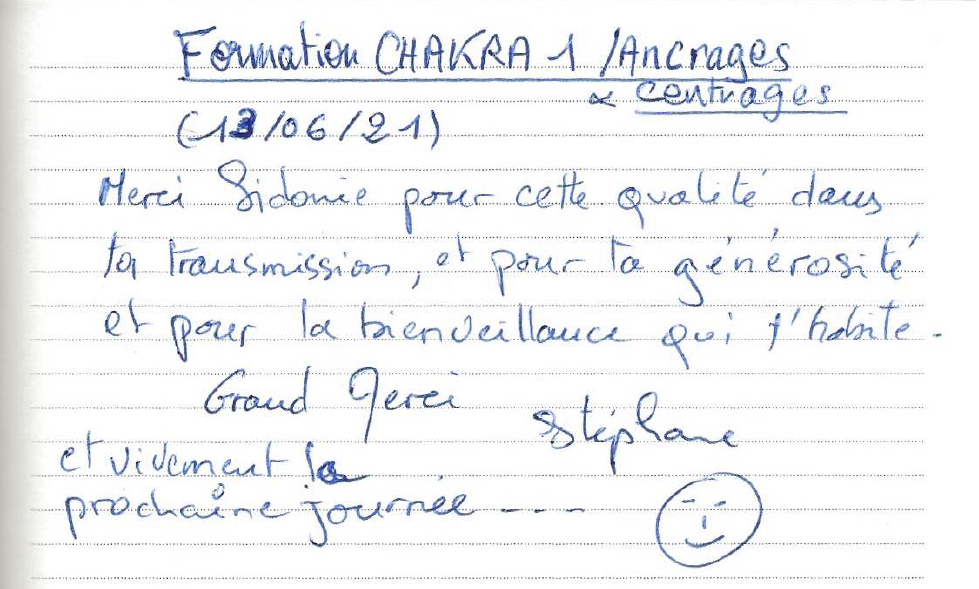 Formation CHAKRA 1 /Ancrages
& centrages
(13/06/21)
Merci Sidonie pour cette qualité dans
ta transmission, et pour ta générosité
et pour la bienveillance qui t'habite.
Grand Merci
Stéphane
et vivement la
prochaine journée ----